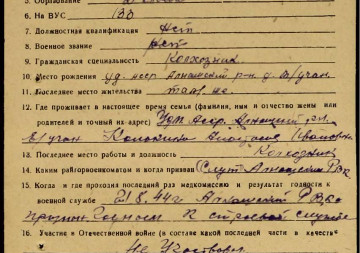 5. Образование
6. На ВУС 133
7. Должностная квалификация нет
8. Военное звание нет
9. Гражданская специальность Колхозник
10. Место рождения Уд. асср. Алнашский р-н. д.
11. Последнее место жительства там же
12. Где проживает в настоящее время семья (фамилия, имя и отчество жены или
родителей и точный их адрес) Удм. Асср. Алнашский р-н.
Ивановна
13. Последнее место работы и должность Колхозник
14. Каким райгорвоенкоматом и когда призван Алнашским РВК
15. Когда и где проходил последний раз медкомиссию и результат годности к
военной службе 21.8.44г Алнашский РВК
признан. Годным к строевой службе
16. Участие в Отечественной войне (в составе какой последней части в качестве
Не участвовал